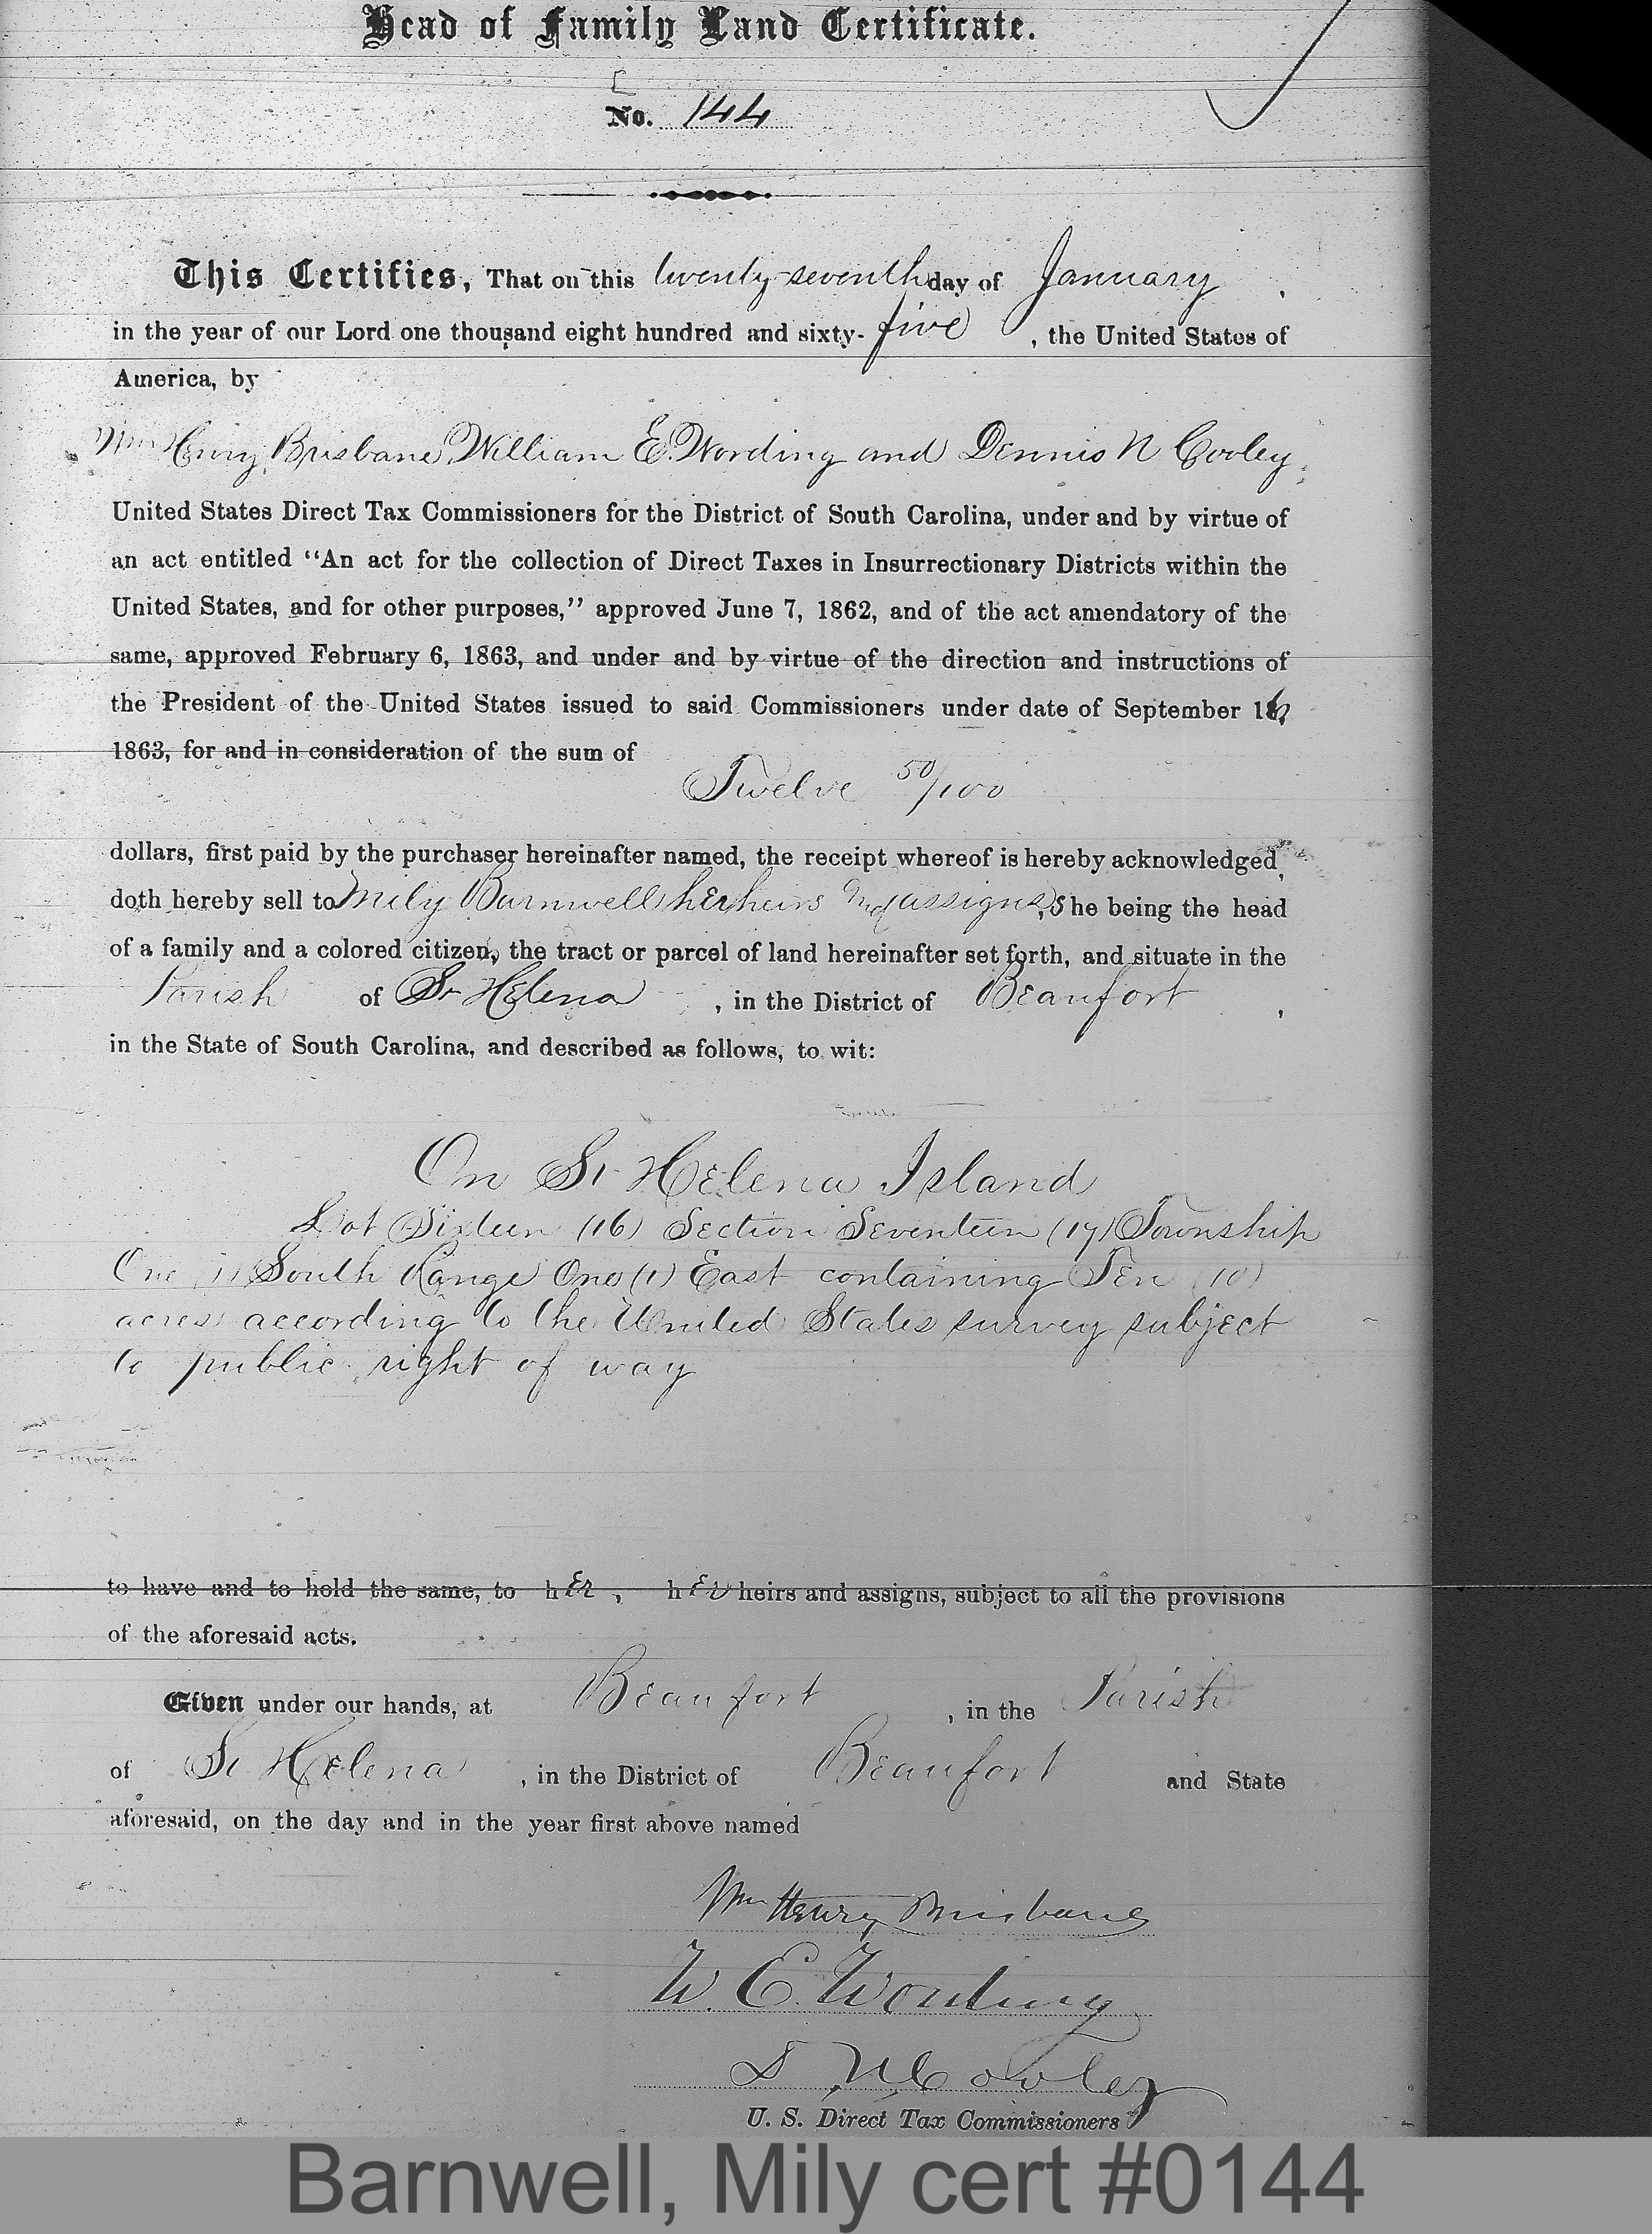 Head of Family Land Certificate.
No. 144
This Certifies, That on this twenty-seventh day of January,
in the year of our Lord one thousand eight hundred and sixty-five, the United States of
America, by
Wm Henry Brisbane, William E. Wording and Dennis N Cooley,
United States Direct Tax Commissioners for the District of South Carolina, under and by virtue of
an act entitled “An act for the collection of Direct Taxes in Insurrectionary Districts within the
United States, and for other purposes,” approved June 7, 1862, and of the act amendatory of the
same, approved February 6, 1863, and under and by virtue of the direction and instructions of
the President of the United States issued to said Commissioners under date of September 16,
1863, for and in consideration of the sum of
Twelve 50/100
dollars, first paid by the purchaser hereinafter named, the receipt whereof is hereby acknowledged,
doth hereby sell to Mily Barnwell her heirs and assigns, She being the head
of a family and a colored citizen, the tract or parcel of land hereinafter set forth, and situate in the
Parish of St Helena, in the District of Beaufort,
in the State of South Carolina, and described as follows, to wit:
On St Helena Island
Lot Sixteen (16) Section Seventeen (17) Township
One (1) South Range One (1) East containing Ten (10)
acres according to the United States survey subject
to public right of way
to have and to hold the same, to her, her heirs and assigns, subject to all the provisions
of the aforesaid acts.
Given under our hands, at Beaufort, in the Parish
of St Helena, in the District of Beaufort and State
aforesaid, on the day and in the year first above named
Wm Henry Brisbane
W. E. Wording
D. N. Cooley
U. S. Direct Tax Commissioners
Barnwell, Mily cert #0144